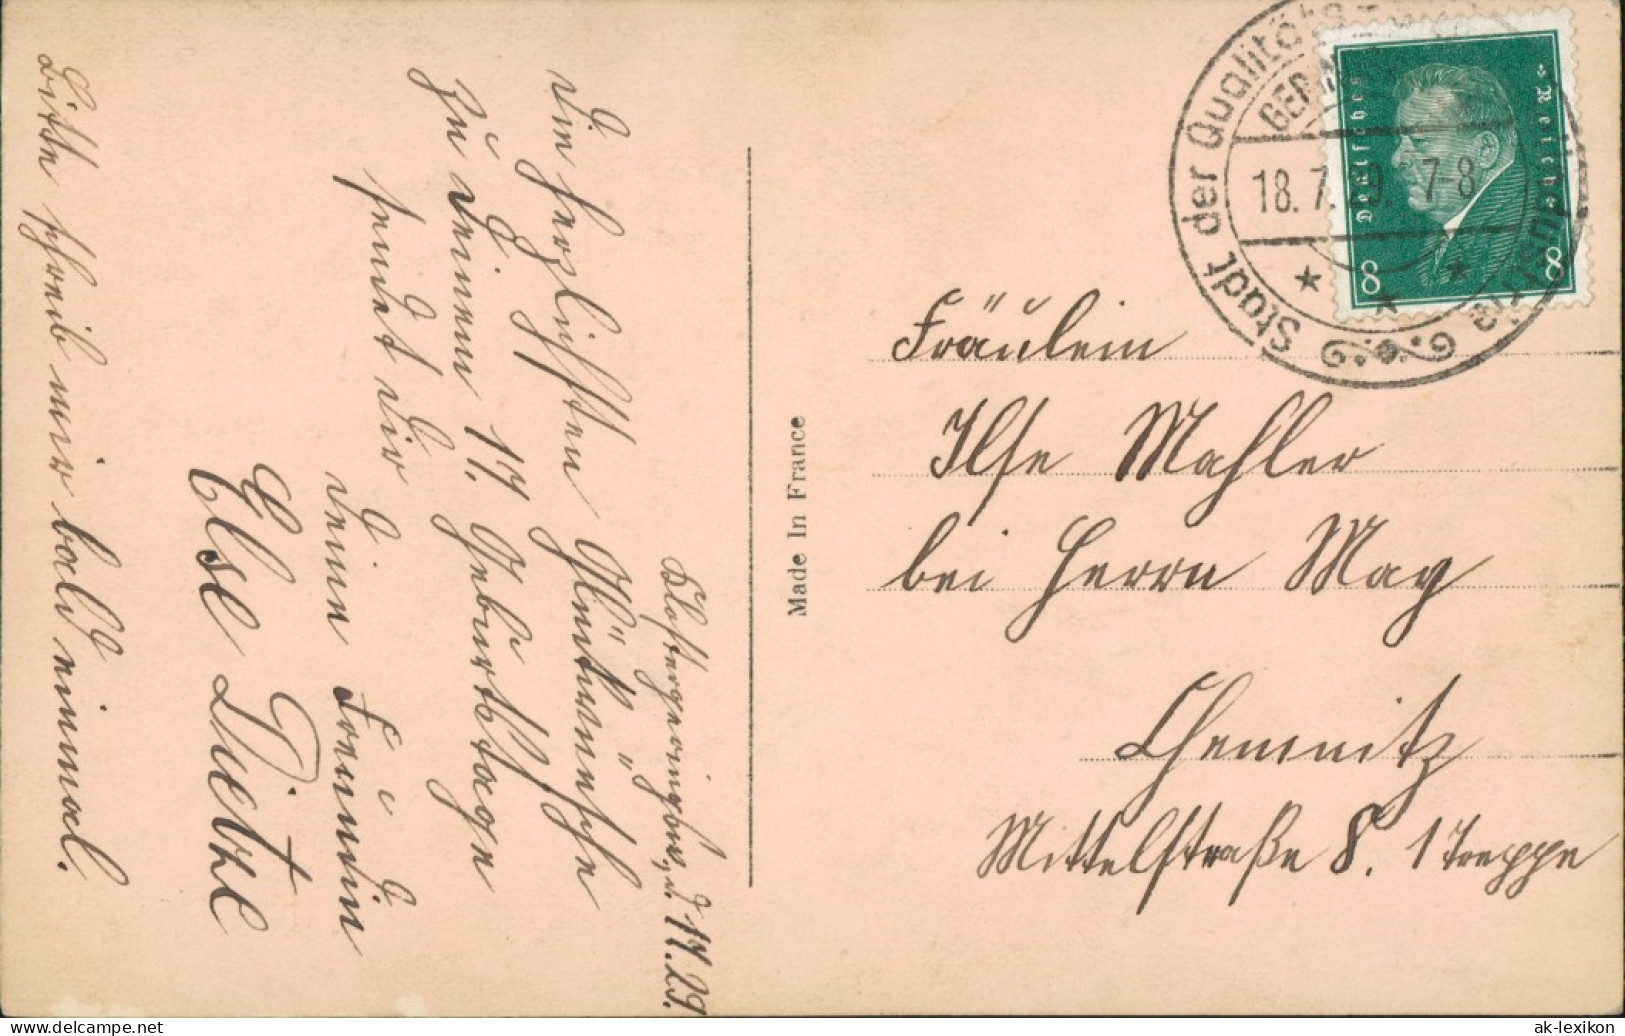 Klostergeringswalde, d. 17. 29.
Die herzlichsten Glückwünsche
zu Deinem 17. Geburtstage
sendet Dir
Deine Freundin
Else Dietze
Bitte schreib mir bald einmal.
Made In France
Stadt der Qualitäts
GERIN
18. 7. 29. 7-8
Deutsches Reich
8 8
Fräulein
Ilse Mahler
bei Herrn May
Chemnitz
Mittelstraße 8. 1 Treppe
ak-lexikon.de
ak-lexikon